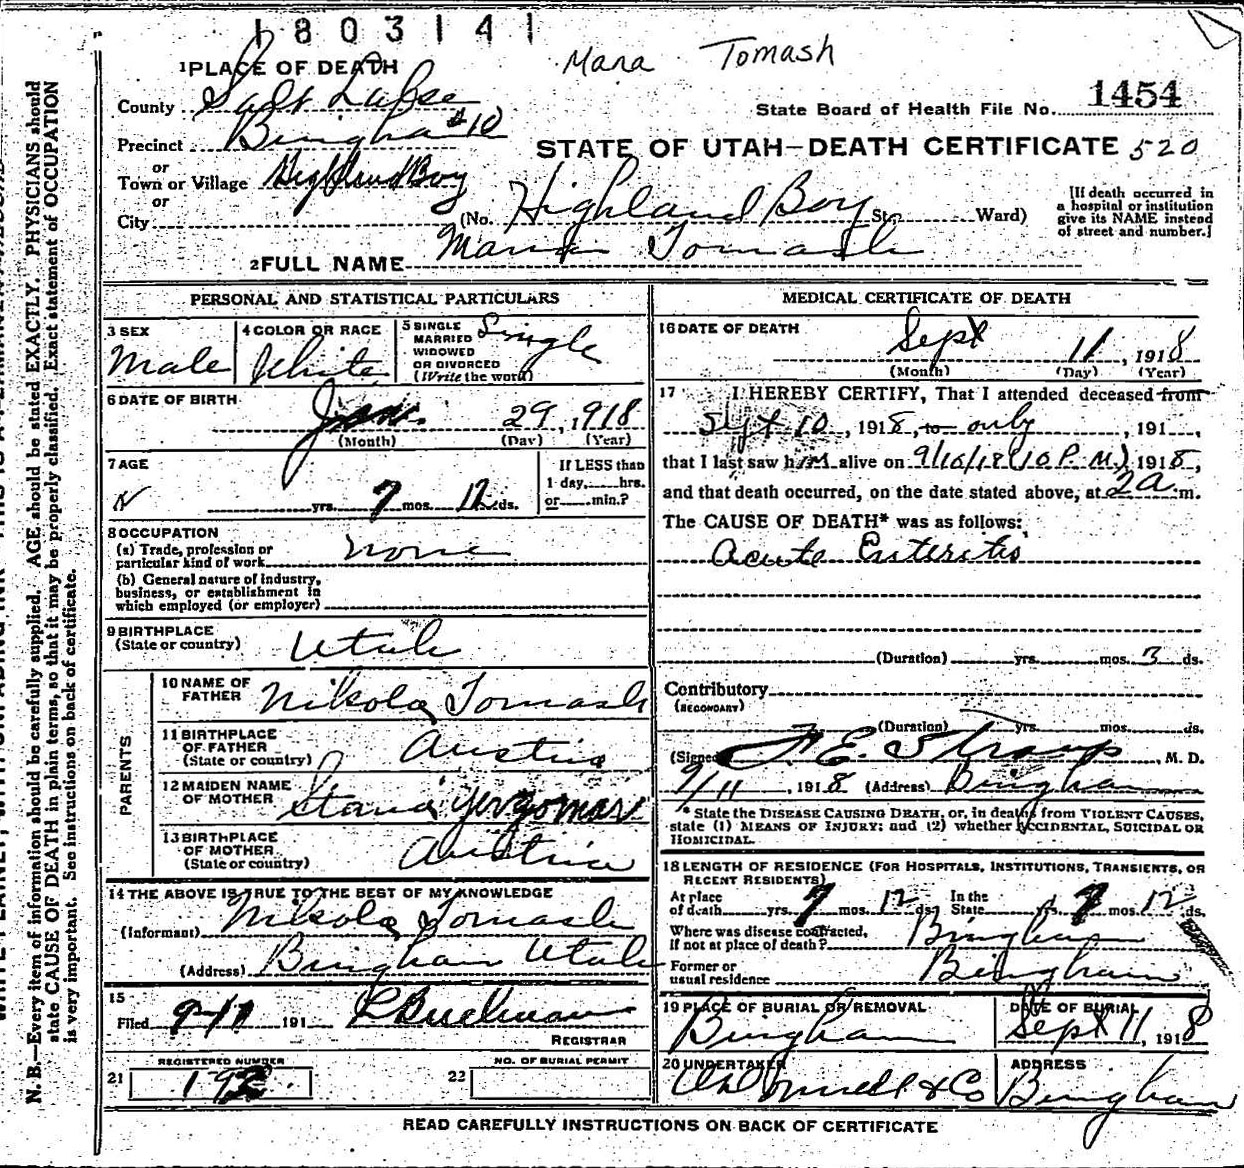 1803141
Mara Tomash
1 PLACE OF DEATH
County Salt Lake
State Board of Health File No. 1454
Precinct Bingham #10
STATE OF UTAH—DEATH CERTIFICATE 520
or
Town or Village Highland Boy
or
City
(No. Highland Boy St. Ward)
[If death occurred in
a hospital or institution
give its NAME instead
of street and number.]
2 FULL NAME Tomash
PERSONAL AND STATISTICAL PARTICULARS
3 SEX
Male
4 COLOR OR RACE
White
5 SINGLE
MARRIED
WIDOWED
OR DIVORCED
(Write the word)
Single
6 DATE OF BIRTH
Jan. 29, 1918
(Month) (Day) (Year)
7 AGE
yrs. 7 mos. 12 ds.
If LESS than
1 day, hrs.
or min.?
8 OCCUPATION
(a) Trade, profession or
particular kind of work none
(b) General nature of industry,
business, or establishment in
which employed (or employer)
9 BIRTHPLACE
(State or country) Utah
PARENTS
10 NAME OF
FATHER Nikola Tomash
11 BIRTHPLACE
OF FATHER
(State or country) Austria
12 MAIDEN NAME
OF MOTHER Stana
13 BIRTHPLACE
OF MOTHER
(State or country) Austria
14 THE ABOVE IS TRUE TO THE BEST OF MY KNOWLEDGE
(Informant) Nikola Tomash
(Address) Bingham Utah
15
Filed 9-11 191
REGISTRAR
REGISTERED NUMBER
21
NO. OF BURIAL PERMIT
22
MEDICAL CERTIFICATE OF DEATH
16 DATE OF DEATH
Sept 11, 1918
(Month) (Day) (Year)
17 I HEREBY CERTIFY, That I attended deceased from
Sept 10, 1918, to only, 191 ,
that I last saw him alive on 9/10/18 (10 P.M.) 1918,
and that death occurred, on the date stated above, at 2 a m.
The CAUSE OF DEATH* was as follows:
Acute Enteritis
(Duration) yrs. mos. 3 ds.
Contributory
(SECONDARY)
(Duration) yrs. mos. ds.
(Signed) F. E. Straup, M. D.
9/11, 1918 (Address) Bingham
* State the DISEASE CAUSING DEATH, or, in deaths from VIOLENT CAUSES,
state (1) MEANS OF INJURY; and (2) whether ACCIDENTAL, SUICIDAL OR
HOMICIDAL.
18 LENGTH OF RESIDENCE (FOR HOSPITALS, INSTITUTIONS, TRANSIENTS, OR
RECENT RESIDENTS)
At place
of death yrs. 7 mos. 12 ds.
In the
State yrs. 7 mos. 12 ds.
Where was disease contracted,
if not at place of death? Bingham
Former or
usual residence Bingham
19 PLACE OF BURIAL OR REMOVAL
Bingham
DATE OF BURIAL
Sept 11, 1918
20 UNDERTAKER
O'Donnell & Co
ADDRESS
Bingham
READ CAREFULLY INSTRUCTIONS ON BACK OF CERTIFICATE
N. B.—Every item of information should be carefully supplied. AGE should be stated EXACTLY. PHYSICIANS should
state CAUSE OF DEATH in plain terms, so that it may be properly classified. Exact statement of OCCUPATION
is very important. See instructions on back of certificate.